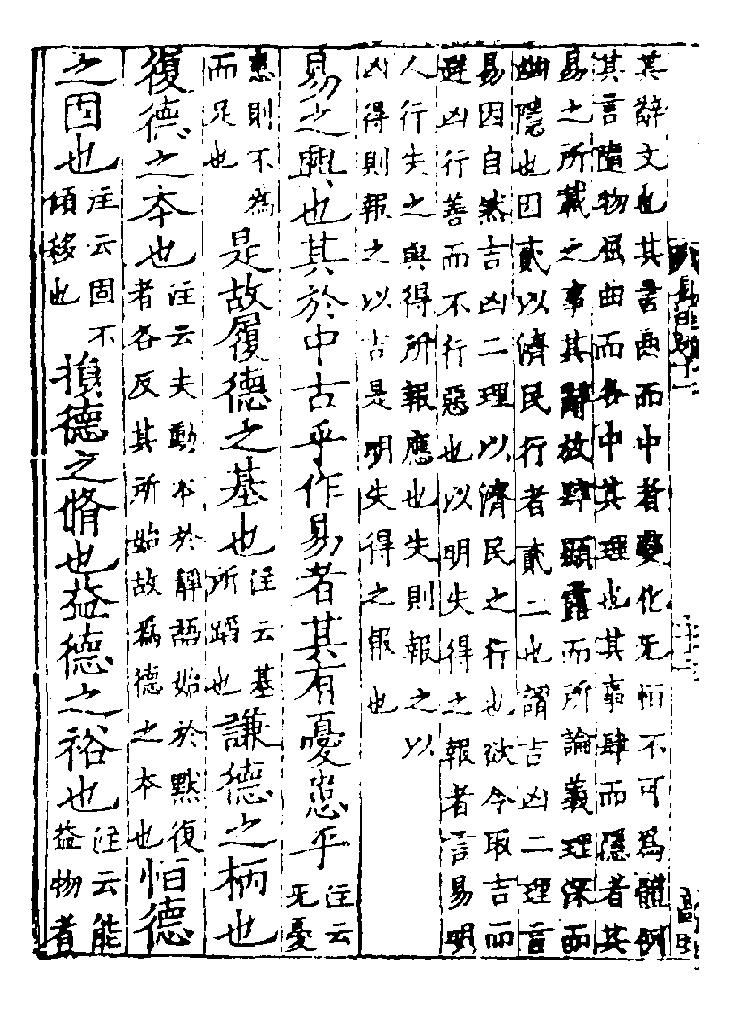 其辭文也其言曲而中者變化无恒不可為體例
其言隨物屈曲而各中其理也其事肆而隱者其
易之所載之事其辭放肆顯露而所論義理深而
幽隱也因貳以濟民行者貳二也謂吉凶二理言
易因自然吉凶二理以濟民之行也欲令取吉而
避凶行善而不行惡也以明失得之報者言易明
人行失之與得所報應也失則報之以
凶得則報之以吉是明失得之報也
易之興也其於中古乎作易者其有憂患乎注云无憂
患則不為而足也是故履德之基也注云基所蹈也謙德之柄也
復德之本也注云夫動本於靜語始於默復者各反其所始故為德之本也恒德
之固也注云固不傾移也損德之脩也益德之裕也注云能益物者